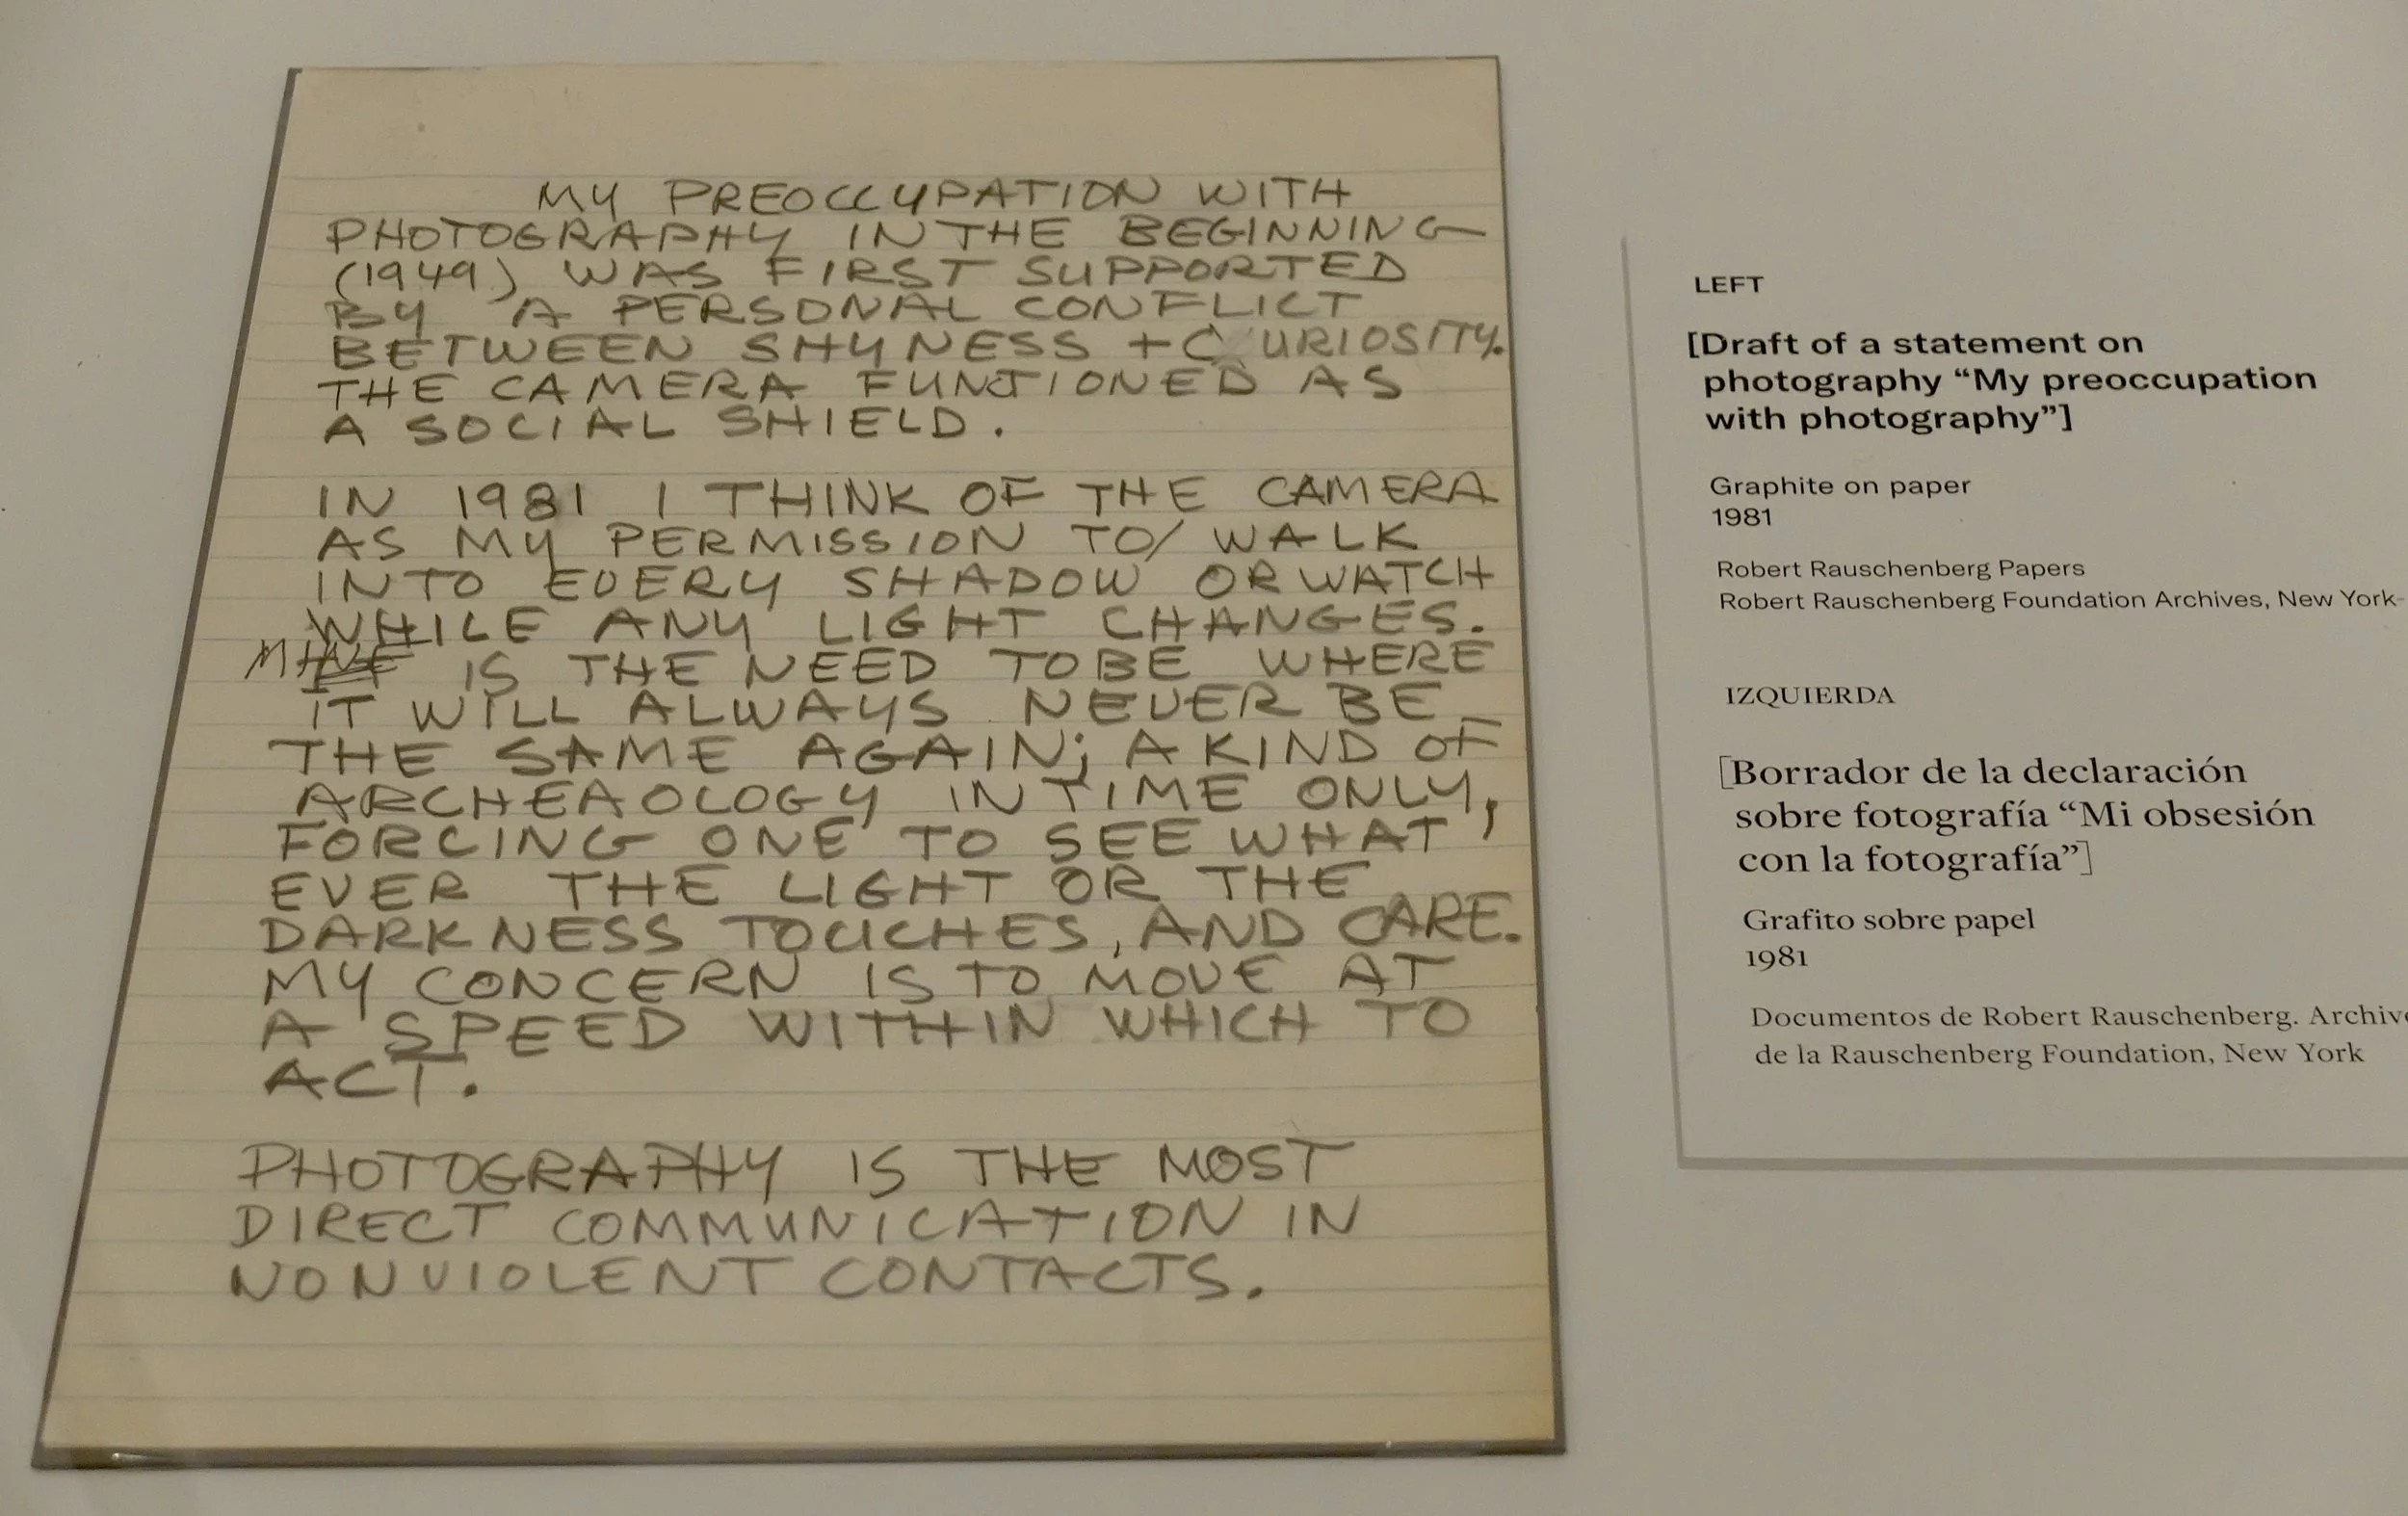 MY PREOCCUPATION WITH
PHOTOGRAPHY IN THE BEGINNING
(1949) WAS FIRST SUPPORTED
BY A PERSONAL CONFLICT
BETWEEN SHYNESS + CURIOSITY.
THE CAMERA FUNCTIONED AS
A SOCIAL SHIELD.
IN 1981 I THINK OF THE CAMERA
AS MY PERMISSION TO/ WALK
INTO EVERY SHADOW OR WATCH
WHILE ANY LIGHT CHANGES.
MINE IS THE NEED TO BE WHERE
IT WILL ALWAYS NEVER BE
THE SAME AGAIN; A KIND OF
ARCHEAOLOGY IN TIME ONLY,
FORCING ONE TO SEE WHAT
EVER THE LIGHT OR THE
DARKNESS TOUCHES, AND CARE.
MY CONCERN IS TO MOVE AT
A SPEED WITHIN WHICH TO
ACT.
PHOTOGRAPHY IS THE MOST
DIRECT COMMUNICATION IN
NONVIOLENT CONTACTS.
LEFT
[Draft of a statement on
photography “My preoccupation
with photography”]
Graphite on paper
1981
Robert Rauschenberg Papers
Robert Rauschenberg Foundation Archives, New York
IZQUIERDA
[Borrador de la declaración
sobre fotografía “Mi obsesión
con la fotografía”]
Grafito sobre papel
1981
Documentos de Robert Rauschenberg. Archiv
de la Rauschenberg Foundation, New York